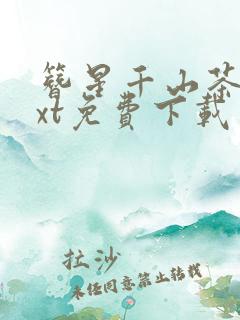 簪星干山茶
xt免費下載
拉沙
未经同意禁止转载